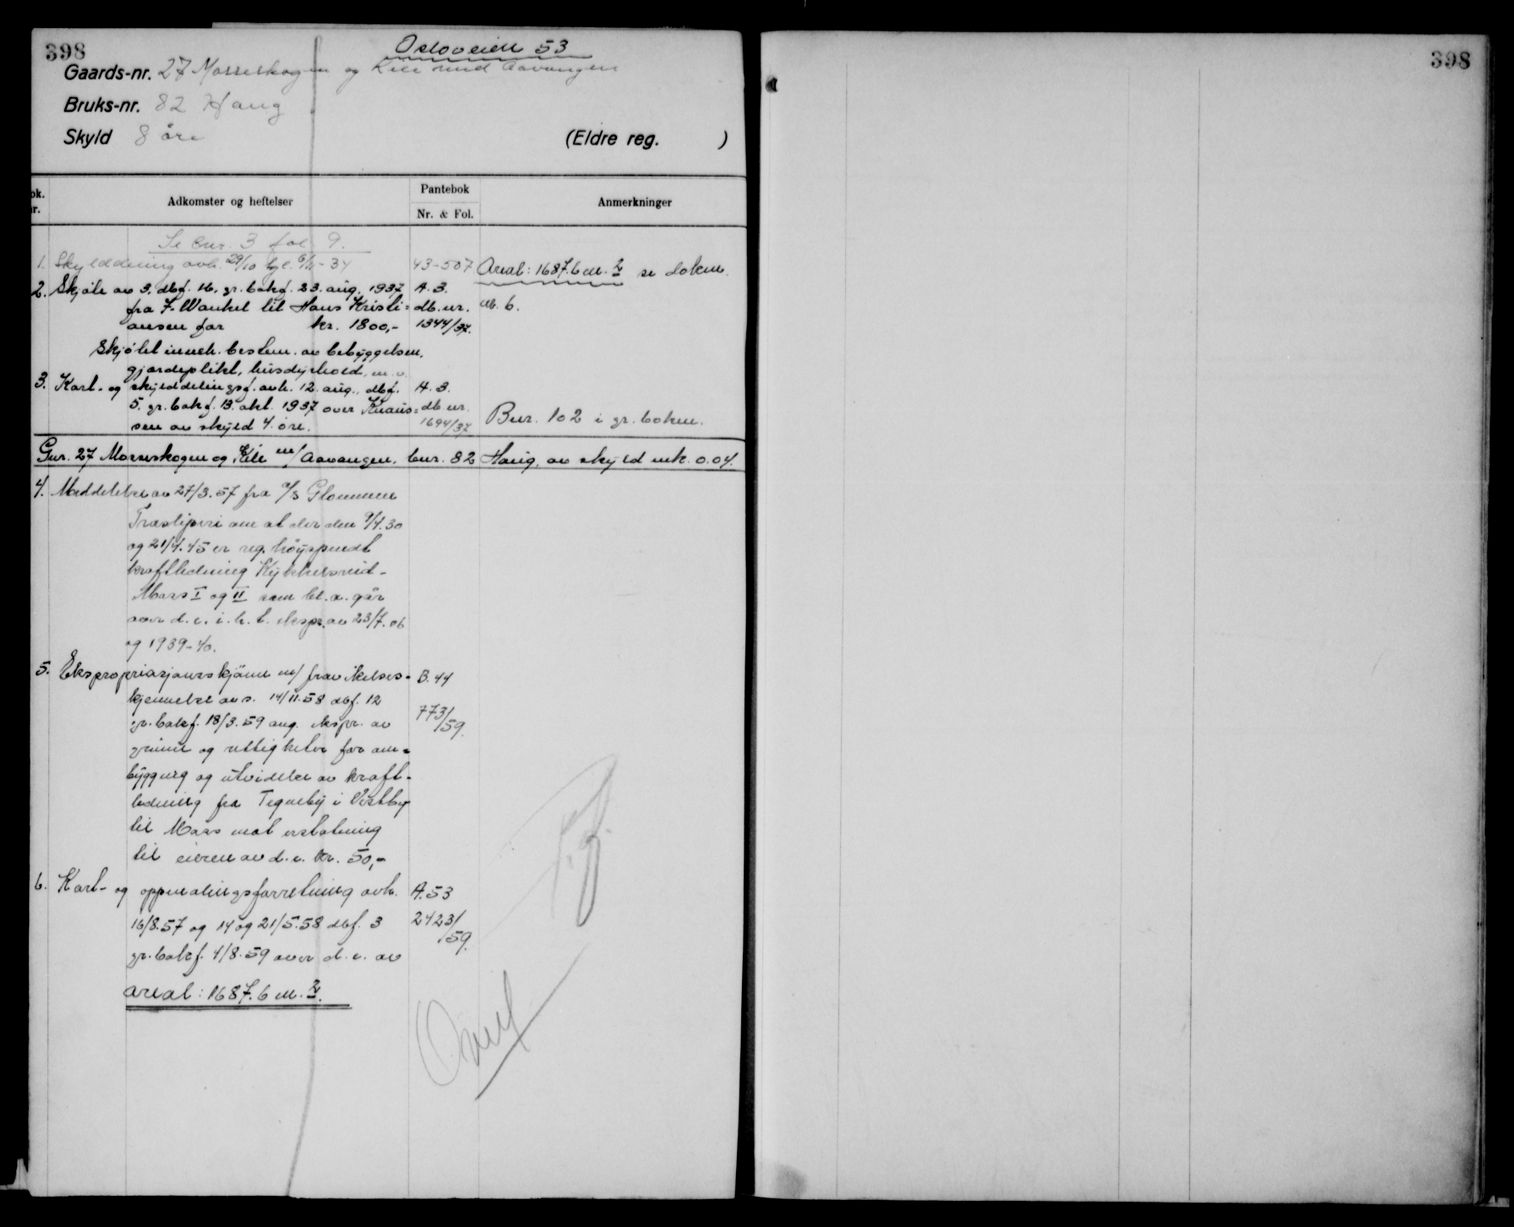 398
Osloveien 53
Gaards-nr. 27 Mosseskogen og Kile med Aavangen
Bruks-nr. 82 Haug
Skyld 8 øre (Eldre reg. )
ok. nr. Adkomster og heftelser Pantebok Nr. & Fol. Anmerkninger
Se bnr. 3 fol. 9.
1. Skylddeling avh. 29/10 tgl. 6/11-34 43-507 Areal: 1687.6 m.2 se dokm.
2. Skjøte av 3. dbf. 16. gr.bokf. 23. aug. 1937 A.3.
fra F. Wankel til Hans Kristi= db.nr. nb. 6.
ansen for kr. 1800,- 1344/37.
Skjøtet inneh. bestem. av bebyggelsen,
gjerdeplikt, husdyrhold m.v.
3. Kart- og skylddelingsf. avh. 12. aug., dbf. A.3.
5. gr.bokf. 13. okt. 1937 over Knaus= db.nr.
sen av skyld 4 øre. 1694/37 Bnr. 102 i gr.boken.
Gnr. 27 Mosseskogen og Kile m/ Aavangen, bnr. 82 Haug, av skyld mk. 0.04.
4. Meddelelse av 27/3.57 fra a/s Glommen
Træsliperi om at der den 9/4.30
og 21/4.45 er reg. høyspendt
kraftledning Kykkelsrud-
Moss I og II som bl.a. går
over d.e. i.h.t. ekspr. av 23/7.06
og 1939-40.
5. Ekspropriasjonsskjønn m/ fravikelses- B.44
kjennelse avs. 14/11.58 dbf. 12
gr.bokf. 18/3.59 ang. ekspr. av 773/59.
grunn og rettigheter for om=
bygging og utvidelse av kraft-
ledning fra Tegneby i Vestby
til Moss mot erstatning
til eieren av d.e. kr. 50,-
6. Kart- og oppmålingsforretning avh. A.53
16/8.57 og 14 og 21/5.58 dbf. 3 2423/59.
gr.bokf. 4/8.59 over d.e. av
areal: 1687.6 m.2
Overf
398